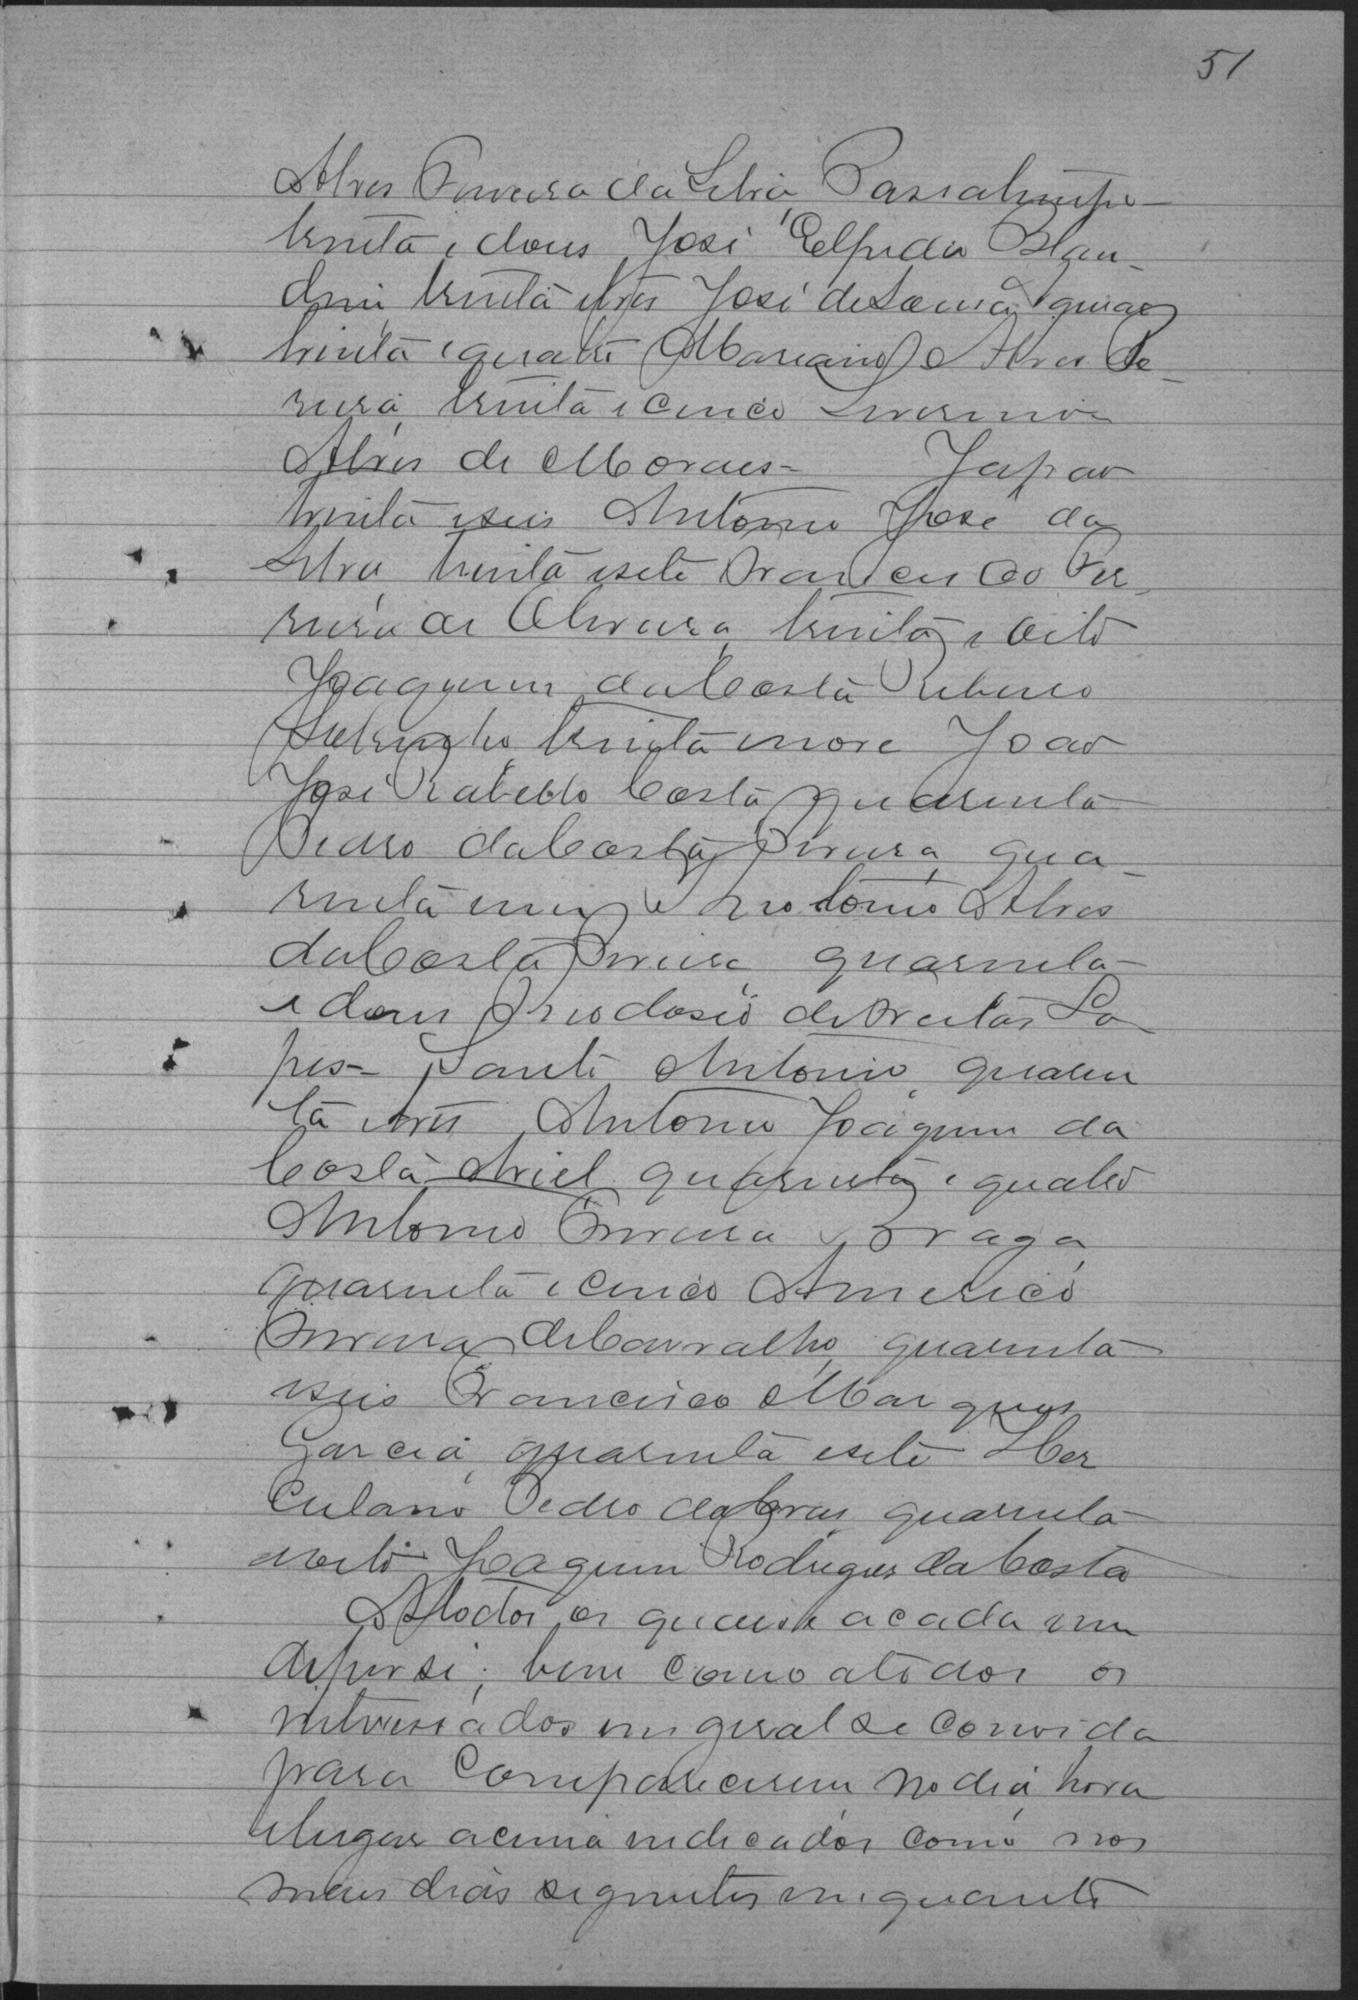 51
Alves Pereira da Silva, Passalimpo
trinta e dous José Elpidio Blan-
dini trinta e tres José de Souza Aguiar
trinta e quatro Mariano Alves Pe-
reira, trinta e cinco Severino
Alves de Moraes - Japão
trinta e seis Antonio José da
Silva trinta e sete Francisco Per-
reira de Oliveira, trinta e oito
Joaquim da Costa Ribeiro
Sobrinho, trinta e nove João
José Rabello Costa, quarenta
Pedro da Costa Pereira, qua-
renta e um Theotonio Alves
da Costa Pereira, quarenta
e dous Theodosio de Freitas Lo
pes - Santo Antonio, quaren
ta e tres Antonio Joaquim da
Costa Ariel quarenta e quatro
Antonio Pereira Braga,
quarenta e cinco Americo
Pereira de Carvalho, quarenta
e seis Francisco Marques
Garcia, quarenta e sete Her
culano Pedro da Cruz, quarenta
e oito Joaquim Rodrigues da Costa
A todos os quaes e a cada um
de per si, bem como a todos os
interessados em geral se convida
para comparecerem no dia hora
e lugar acima indicados como nos
mais dias seguintes emquanto